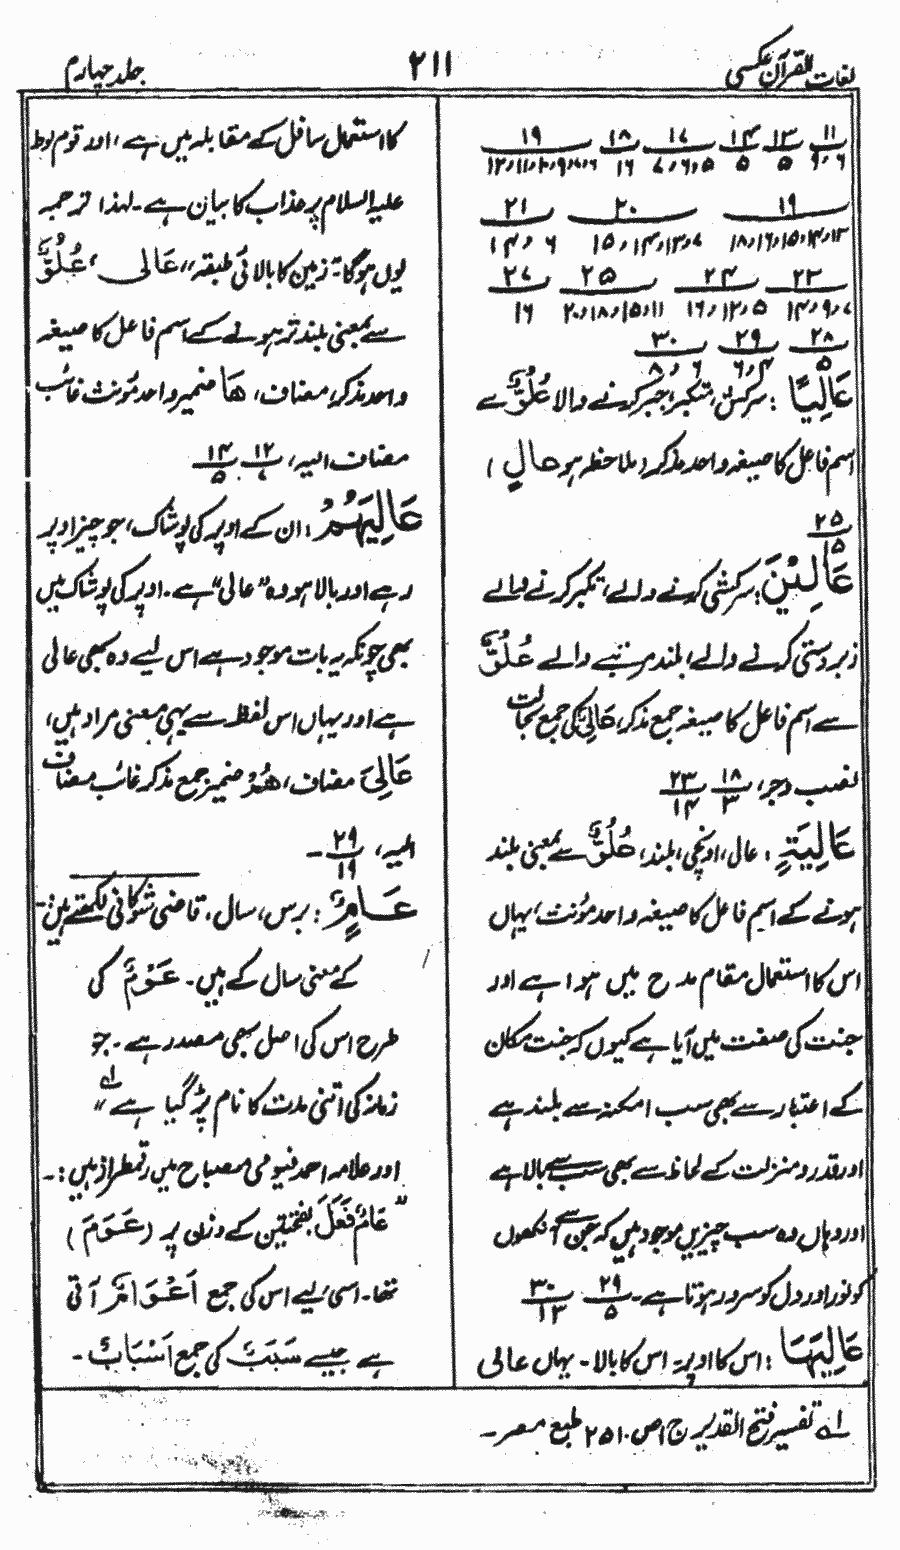 لغات القرآن عکسی
۲۱۱
جلد چہارم
۱۱ ۱۳ ۱۴ ۱۷ ۱۸ ۱۹
۶،۹ ۵ ۵ ۵،۶،۷ ۱۶ ۶،۸،۹،۱۰،۱۱،۱۲
۱۹ ۲۰ ۲۱
۱۳،۱۴،۱۵،۱۶،۱۸ ۷،۱۳،۱۴،۱۵ ۶،۱۴
۲۳ ۲۴ ۲۵ ۲۷
۷،۹،۱۴ ۵،۱۲،۱۶ ۱۱،۱۵،۱۸،۲۰ ۱۶
۲۸ ۲۹ ۳۰
۵ ۴،۶ ۶،۸
عَالِيًا : سرکش، متکبر، جبر کرنے والا عُلُوٌّ سے
اسم فاعل کا صیغہ واحد مذکر (ملاحظہ ہو حالٍ)
۲۵
۱۵
عَالِيْنَ : سرکشی کرنے والے، تکبر کرنے والے
زبردستی کرنے والے، بلند مرتبے والے عُلُوٌّ
سے اسم فاعل کا صیغہ جمع مذکر، عَالِیْ کی جمع بحالت
نصب وجر، ۱۸ ۲۳
۳ ۱۴
عَالِيَةٍ : عال، اونچی، بلند، عُلُوٌّ سے بمعنی بلند
ہونے کے اسم فاعل کا صیغہ واحد مؤنث، یہاں
اس کا استعمال مقام مدح میں ہوا ہے اور
جنت کی صفت میں آیا ہے کیوں کہ جنت مکان
کے اعتبار سے بھی سب امکنہ سے بلند ہے
اور قدر و منزلت کے لحاظ سے بھی سب سے بالا ہے
اور وہاں وہ سب چیزیں موجود ہیں کہ جن سے آنکھوں
کو نور اور دل کو سرور ہوتا ہے۔ ۲۹ ۳۰
۵ ۱۳
عَالِيَهَا : اس کا اوپر، اس کا بالا۔ یہاں عالی
کا استعمال سافل کے مقابلہ میں ہے، اور قوم لوط
علیہ السلام پر عذاب کا بیان ہے۔ لہذا ترجمہ
یوں ہوگا۔ زمین کا بالائی طبقہ" عَالی، عُلُوٌّ
سے بمعنی بلند تر ہونے کے اسم فاعل کا صیغہ
واحد مذکر، مضاف، هَا ضمیر واحد مؤنث غائب
مضاف الیہ، ۱۲ ۱۴
۷ ۵
عَالِيَهُمْ : ان کے اوپر کی پوشاک، جو چیز اوپر
رہے اور بالا ہو وہ "عالی" ہے۔ اوپر کی پوشاک میں
بھی چونکہ یہ بات موجود ہے اس لیے وہ بھی عالی
ہے اور یہاں اس لفظ سے یہی معنی مراد ہیں،
عَالِیَ مضاف، هُمْ ضمیر جمع مذکر غائب مضاف
الیہ، ۲۹
۱۹ ۔
عَامٌ : برس، سال، قاضی شوکانی لکھتے ہیں:۔
کے معنی سال کے ہیں۔ عَوْمٌ کی
طرح اس کی اصل بھی مصدر ہے۔ جو
زمانہ کی اتنی مدت کا نام پڑ گیا ہے" ؎۱
اور علامہ احمد فیومی مصباح میں رقمطراز ہیں :۔
"عَامٌ فَعَلَ بفتحتین کے وزن پر (عَوَمَ)
تھا۔ اسی لیے اس کی جمع اَعْوَامٌ آتی
ہے جیسے سَبَبٌ کی جمع اَسْبَابٌ ۔
؎۱ تفسیر فتح القدیر ج ۱ ص ۲۵۱ طبع مصر۔